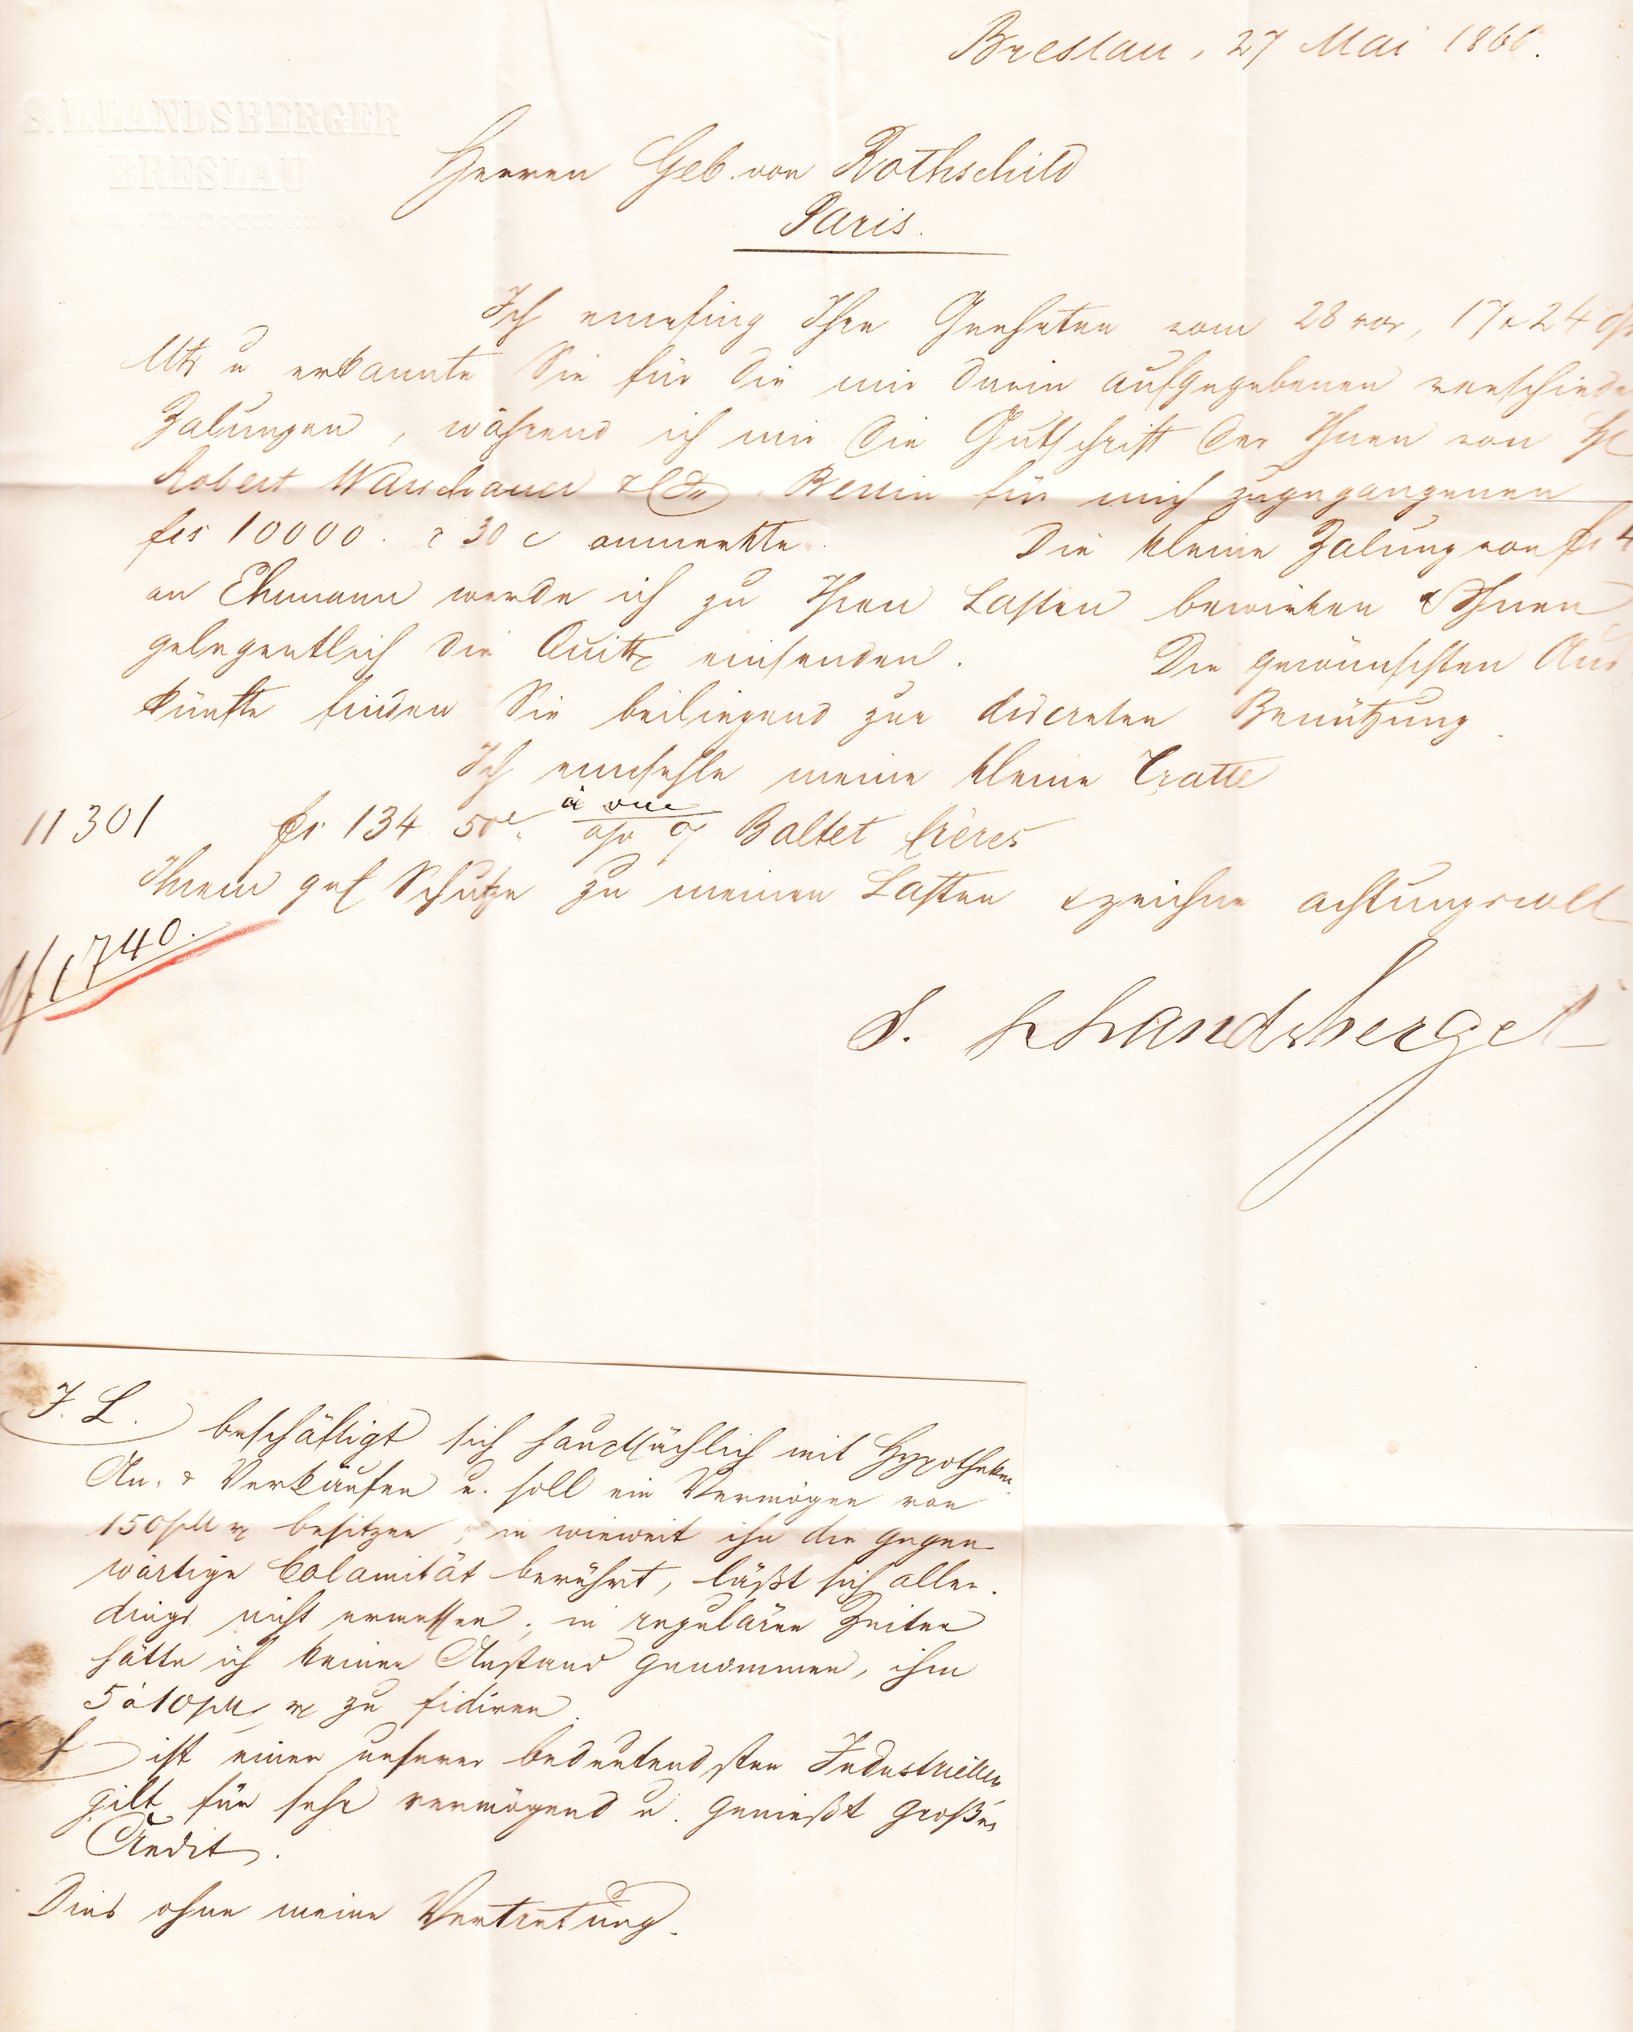 Breslau, 27 Mai 1866.
S. L. LANDSBERGER
BRESLAU
Herren Geb. von Rothschild
Paris.
Ich empfing Ihre Geehrten vom 28 vor, 17 & 24 ds
Mts u erkannte Sie für die mir darin aufgegebenen verschiede
Zalungen, während ich mir die Gutschrift der Ihnen von HE
Robert Warschauer & Co, Berlin für mich zugegangenen
frs 10000. 30 c anmerkte. Die kleine Zalung von fr 4
an Ehmann werde ich zu Ihren Lasten bewirken & Ihnen
gelegentlich die Quittg einsenden. Die gewünschten Aus
künfte finden Sie beiliegend zur discreten Benützung.
Ich empfehle meine kleine Tratte
11301 fr 134 50 c à vue o/ Baltet frères
Ihrem gef Schutze zu meinen Lasten & zeichne achtungsvoll
1740.
S. L Landsberger
J. L. beschäftigt sich hauptsächlich mit Hypotheken
An- & Verkäufen u. soll ein Vermögen von
150/M besitzen, in wieweit ihn die gegen-
wärtige Calamität berührt, läßt sich aller-
dings nicht ermessen; in regulären Zeiten
hätte ich keinen Anstand genommen, ihm
5 à 10/M zu fidiren.
f ist einer unserer bedeutendsten Industriellen
gilt für sehr vermögend u. genießt großen
Credit.
Dies ohne meine Vertretung.